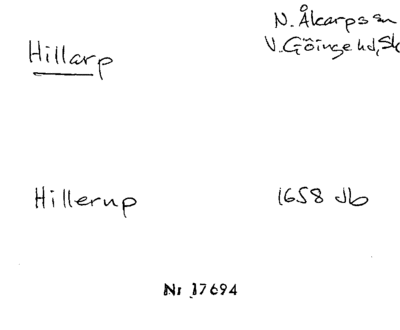 Hillarp
N. Åkarps sn
V. Göinge hd, Sk
Hillerup
1658 Jb
Nr 17694